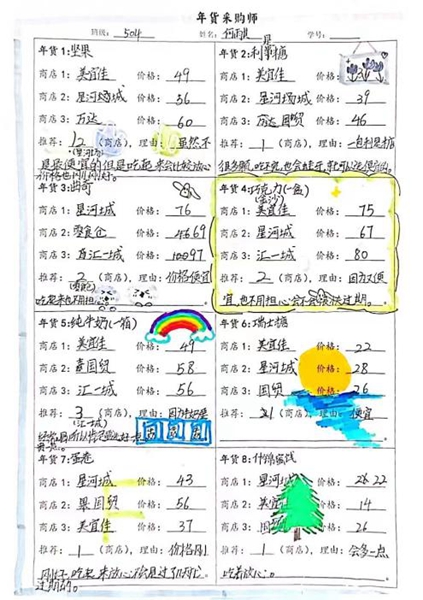 年货采购师
班级：504 姓名： 学号：
年货1：坚果
商店1：美宜佳 价格：49
商店2：星河城 价格：56
商店3：万达 价格：60
推荐：2（商店），理由：虽然不
是最便宜的但是吃起来会比较放心
价格也刚刚好。
年货2：利是糖
商店1：美宜佳 价格：
商店2：星河城 价格：39
商店3：万达国贸 价格：46
推荐：1（商店），理由：一包利是糖
很多颗，吃不完也会
年货3：曲奇
商店1：星河城 价格：76
商店2：零食仓 价格：69
商店3：汇一城 价格：97
推荐：2（商店），理由：价格便宜
吃起来也不用担心
年货4：巧克力（一盒）
（金沙）
商店1：美宜佳 价格：75
商店2：星河城 价格：67
商店3：汇一城 价格：80
推荐：2（商店），理由：因为又便
宜，也不用担心会不会很快过期。
年货5：纯牛奶（一箱）
商店1：美宜佳 价格：49
商店2：国贸 价格：58
商店3：汇一城 价格：56
推荐：3（商店），理由：因为
（汇一城）
年货6：瑞士糖
商店1：美宜佳 价格：22
商店2：星河城 价格：28
商店3：国贸 价格：26
推荐：1（商店），理由：便宜
年货7：蛋卷
商店1：星河城 价格：43
商店2：国贸 价格：56
商店3：美宜佳 价格：37
推荐：1（商店），理由：价格刚
刚好，吃起来放心不会是过了
过期的。
年货8：什锦
商店1：星河城 价格：22
商店2：美宜佳 价格：14
商店3：国贸 价格：26
推荐：1（商店），理由：会多一点
吃着放心。